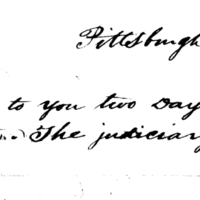 Pittsburgh
to you two Day
The judiciary